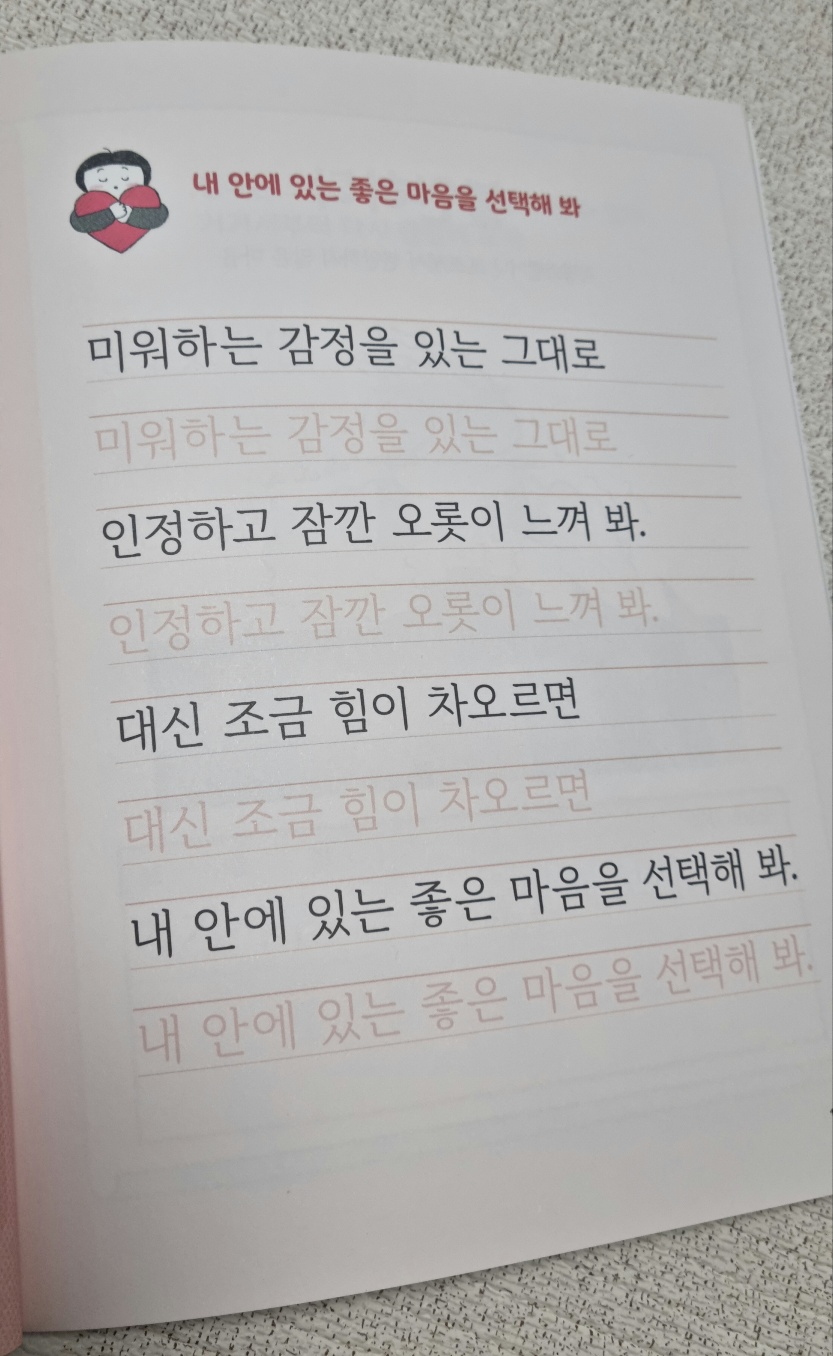 내 안에 있는 좋은 마음을 선택해 봐
미워하는 감정을 있는 그대로
미워하는 감정을 있는 그대로
인정하고 잠깐 오롯이 느껴 봐.
인정하고 잠깐 오롯이 느껴 봐.
대신 조금 힘이 차오르면
대신 조금 힘이 차오르면
내 안에 있는 좋은 마음을 선택해 봐.
내 안에 있는 좋은 마음을 선택해 봐.